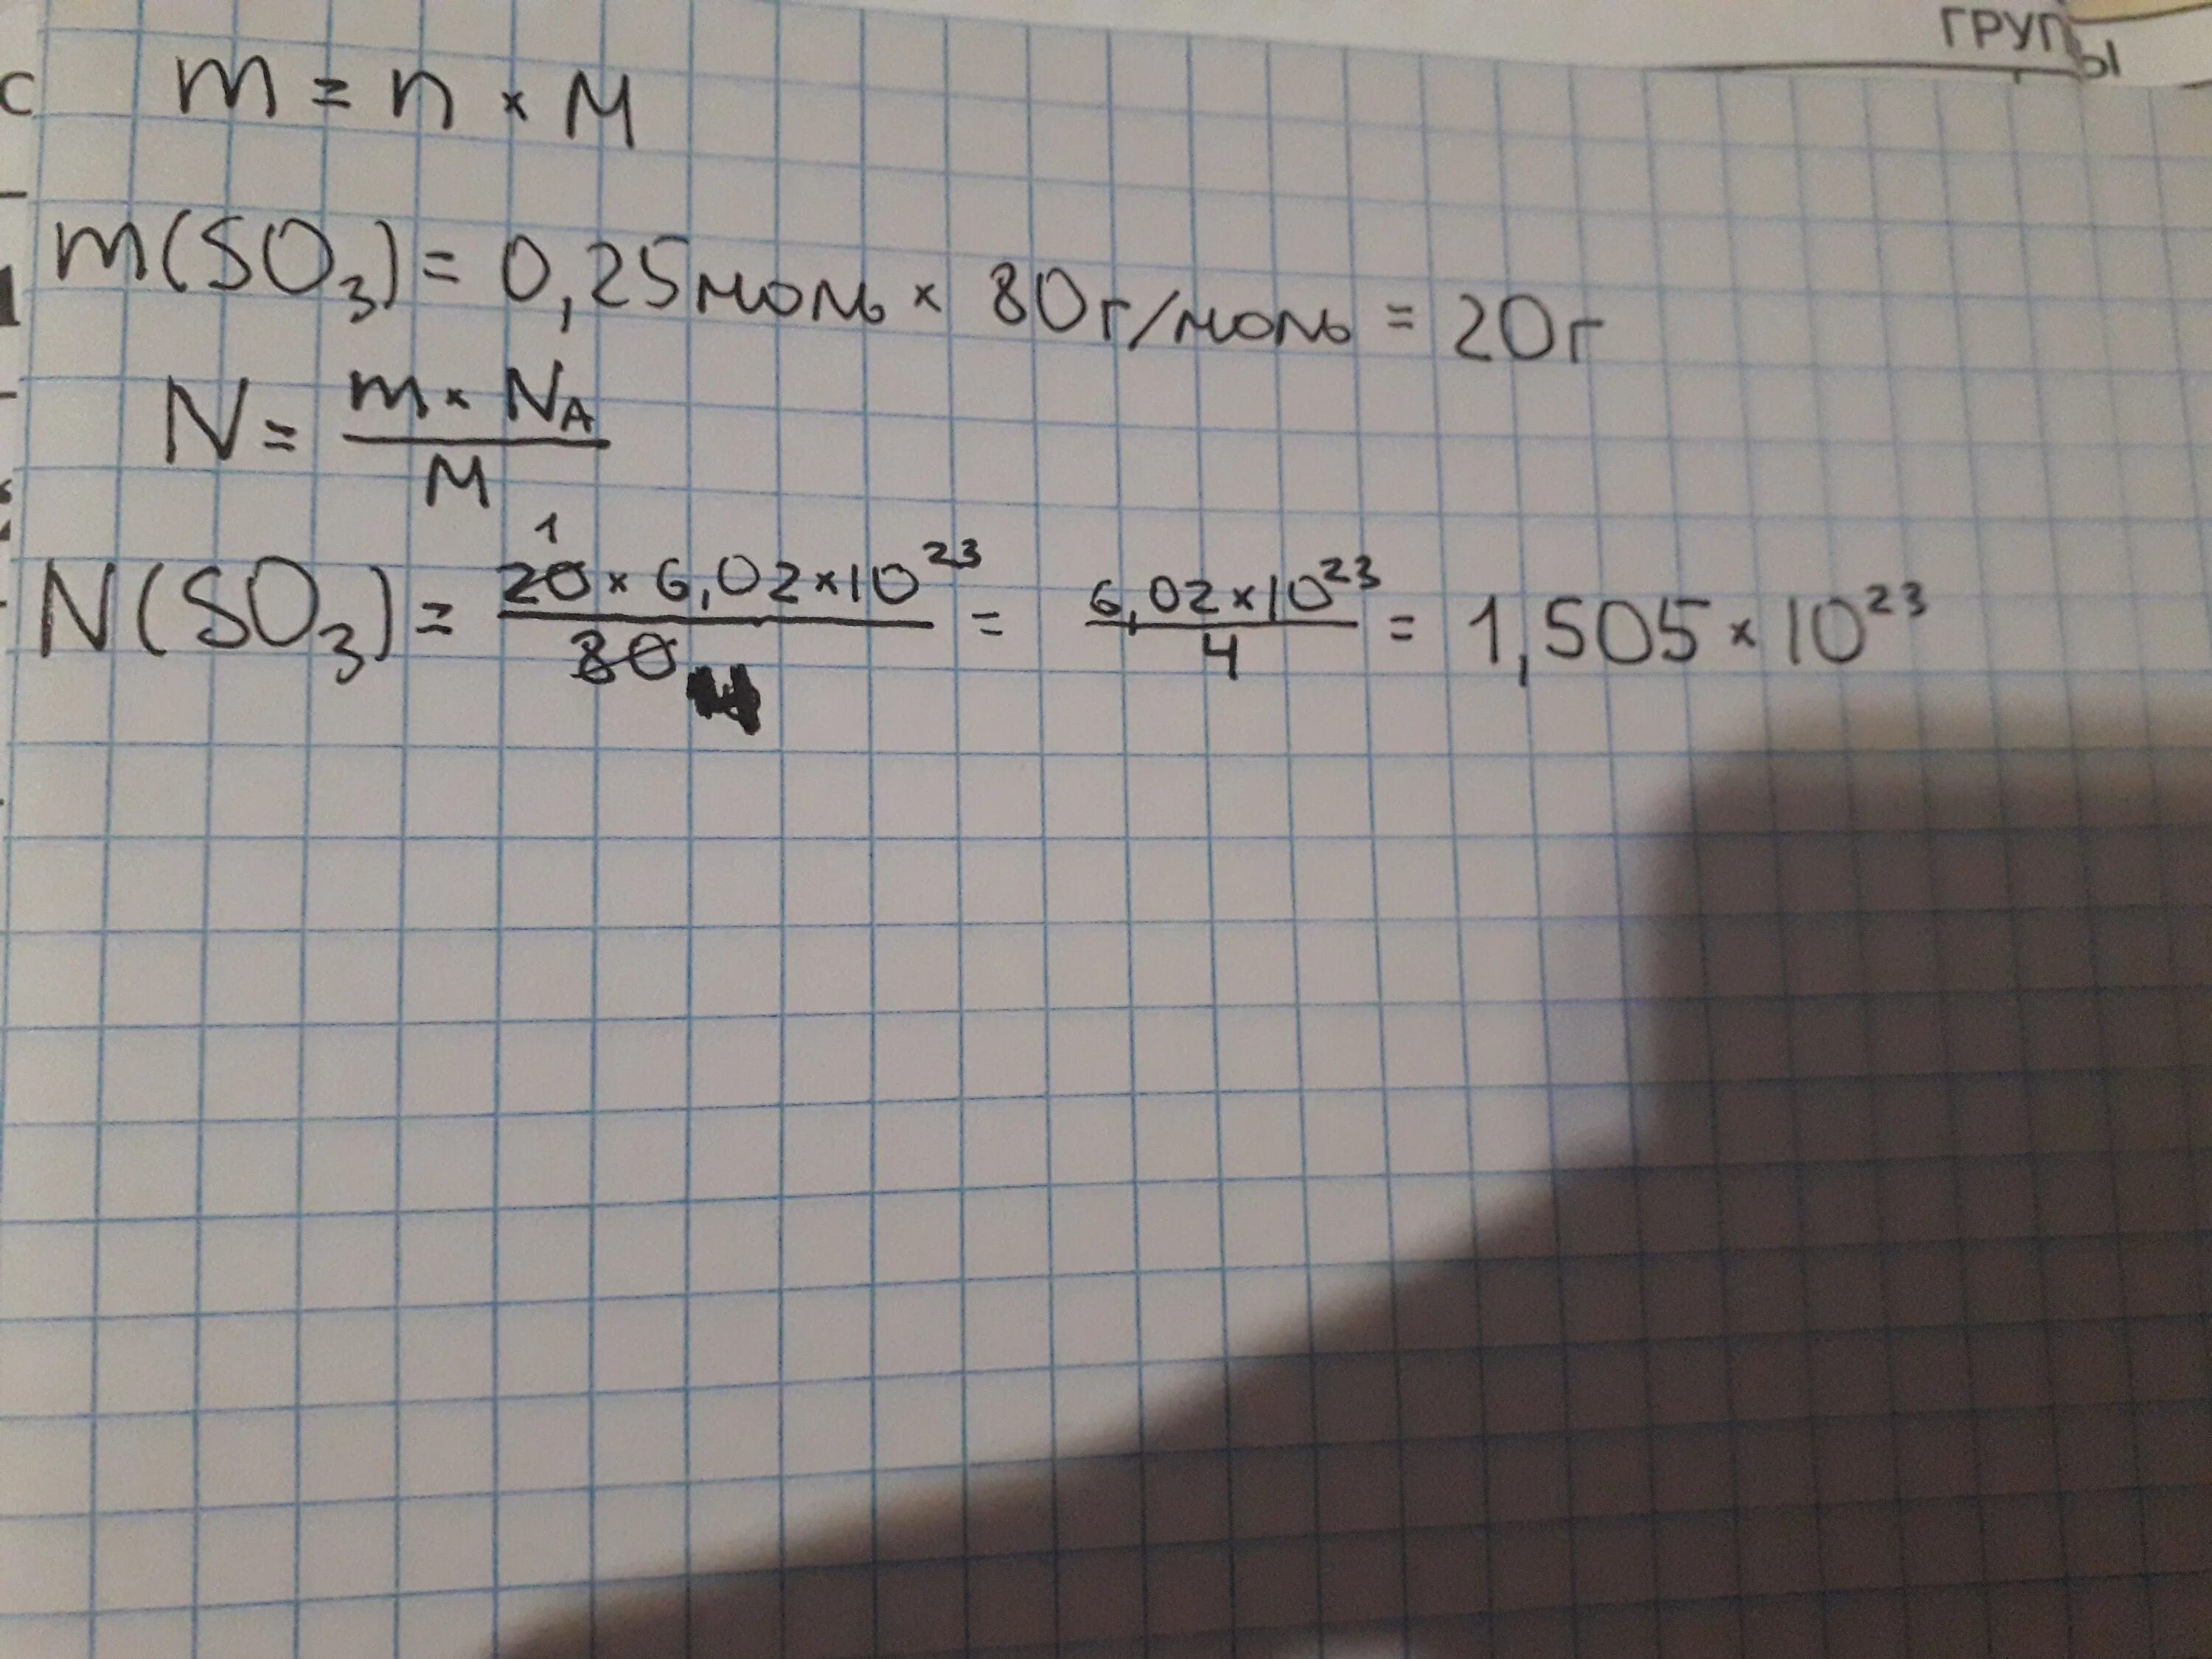 ГРУПЫ
c
m = n × M
m(SO₃) = 0,25моль × 80г/моль = 20г
N = m × N_A / M
N(SO₃) = 20 1 × 6,02×10²³ / 80 4 = 6,02×10²³ / 4 = 1,505 × 10²³